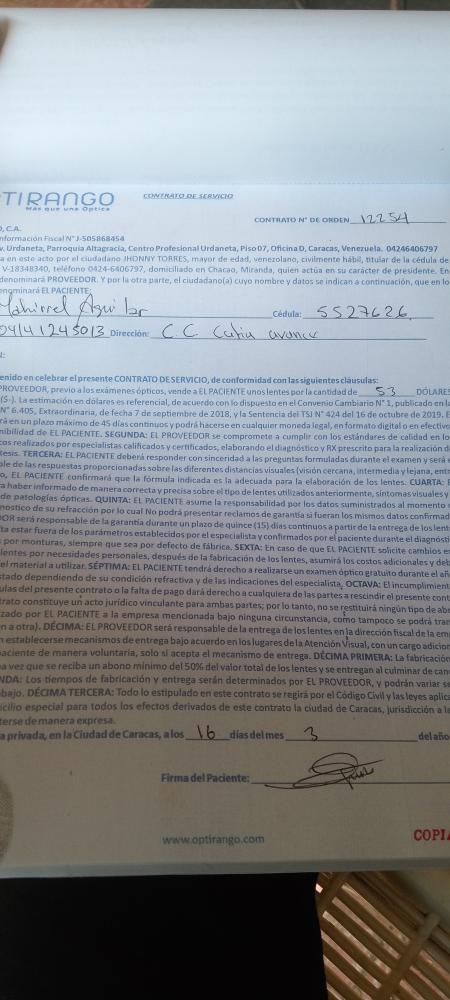 TIRANGO
Más que una Optica
CONTRATO DE SERVICIO
CONTRATO N° DE ORDEN 12254
O, C.A.
nformación Fiscal N° J-505868454
v. Urdaneta, Parroquia Altagracia, Centro Profesional Urdaneta, Piso 07, Oficina D, Caracas, Venezuela. 04246406797
a en este acto por el ciudadano JHONNY TORRES, mayor de edad, venezolano, civilmente hábil, titular de la cédula de
V-18348340, teléfono 0424-6406797, domiciliado en Chacao, Miranda, quien actúa en su carácter de presidente. En
denominará PROVEEDOR. Y por la otra parte, el ciudadano(a) cuyo nombre y datos se indican a continuación, que en lo
enominará EL PACIENTE:
Aguilar Cédula: 5527626
04141245013 Dirección: C.C. Catia avance
N:
enido en celebrar el presente CONTRATO DE SERVICIO, de conformidad con las siguientes cláusulas:
PROVEEDOR, previo a los exámenes ópticos, vende a EL PACIENTE unos lentes por la cantidad de 53 DÓLARES
(S-). La estimación en dólares es referencial, de acuerdo con lo dispuesto en el Convenio Cambiario N° 1, publicado en la
N° 6.405, Extraordinaria, de fecha 7 de septiembre de 2018, y la Sentencia del TSJ N° 424 del 16 de octubre de 2019. E
rá en un plazo máximo de 45 días continuos y podrá hacerse en cualquier moneda legal, en formato digital o en efectivo
nibilidad de EL PACIENTE. SEGUNDA: EL PROVEEDOR se compromete a cumplir con los estándares de calidad en lo
cos realizados por especialistas calificados y certificados, elaborando el diagnóstico y RX prescrito para la realización d
tesis. TERCERA: EL PACIENTE deberá responder con sinceridad a las preguntas formuladas durante el examen y será
le de las respuestas proporcionadas sobre las diferentes distancias visuales (visión cercana, intermedia y lejana, entr
o, EL PACIENTE confirmará que la fórmula indicada es la adecuada para la elaboración de los lentes. CUARTA: E
a haber informado de manera correcta y precisa sobre el tipo de lentes utilizados anteriormente, síntomas visuales y
de patologías ópticas. QUINTA: EL PACIENTE asume la responsabilidad por los datos suministrados al momento
nostico de su refracción por lo cual No podrá presentar reclamos de garantía si fueran los mismos datos confirmad
DOR será responsable de la garantía durante un plazo de quince (15) días continuos a partir de la entrega de los lent
ta estar fuera de los parámetros establecidos por el especialista y confirmados por el paciente durante el diagnósti
s por monturas, siempre que sea por defecto de fábrica. SEXTA: En caso de que EL PACIENTE solicite cambios es
lentes por necesidades personales, después de la fabricación de los lentes, asumirá los costos adicionales y deb
el material a utilizar. SÉPTIMA: EL PACIENTE tendrá derecho a realizarse un examen óptico gratuito durante el añ
stado dependiendo de su condición refractiva y de las indicaciones del especialista. OCTAVA: El incumplimient
ulas del presente contrato o la falta de pago dará derecho a cualquiera de las partes a rescindir el presente cont
trato constituye un acto jurídico vinculante para ambas partes; por lo tanto, no se restituirá ningún tipo de abo
zado por EL PACIENTE a la empresa mencionada bajo ninguna circunstancia, como tampoco se podrá tran
en a otra). DÉCIMA: EL PROVEEDOR será responsable de la entrega de los lentes en la dirección fiscal de la em
n establecerse mecanismos de entrega bajo acuerdo en los lugares de la Atención Visual, con un cargo adicion
paciente de manera voluntaria, solo si acepta el mecanismo de entrega. DÉCIMA PRIMERA: La fabricación
a vez que se reciba un abono mínimo del 50% del valor total de los lentes y se entregan al culminar de can
NDA: Los tiempos de fabricación y entrega serán determinados por EL PROVEEDOR, y podrán variar se
bajo. DÉCIMA TERCERA: Todo lo estipulado en este contrato se regirá por el Código Civil y las leyes aplica
icilio especial para todos los efectos derivados de este contrato la ciudad de Caracas, jurisdicción a la
terse de manera expresa.
a privada, en la Ciudad de Caracas, a los 16 días del mes 3 del año
Firma del Paciente:
www.optirango.com
COPIA